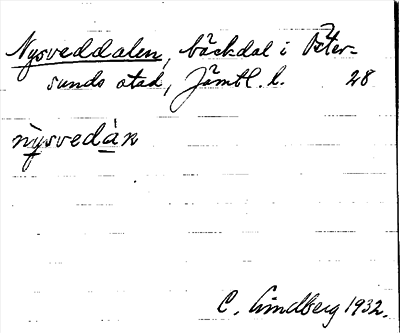 Nysveddalen, bäckdal i Öster-
sunds stad, Jämtl. l. 28
nỳsvedàn
C. Lindberg 1932.